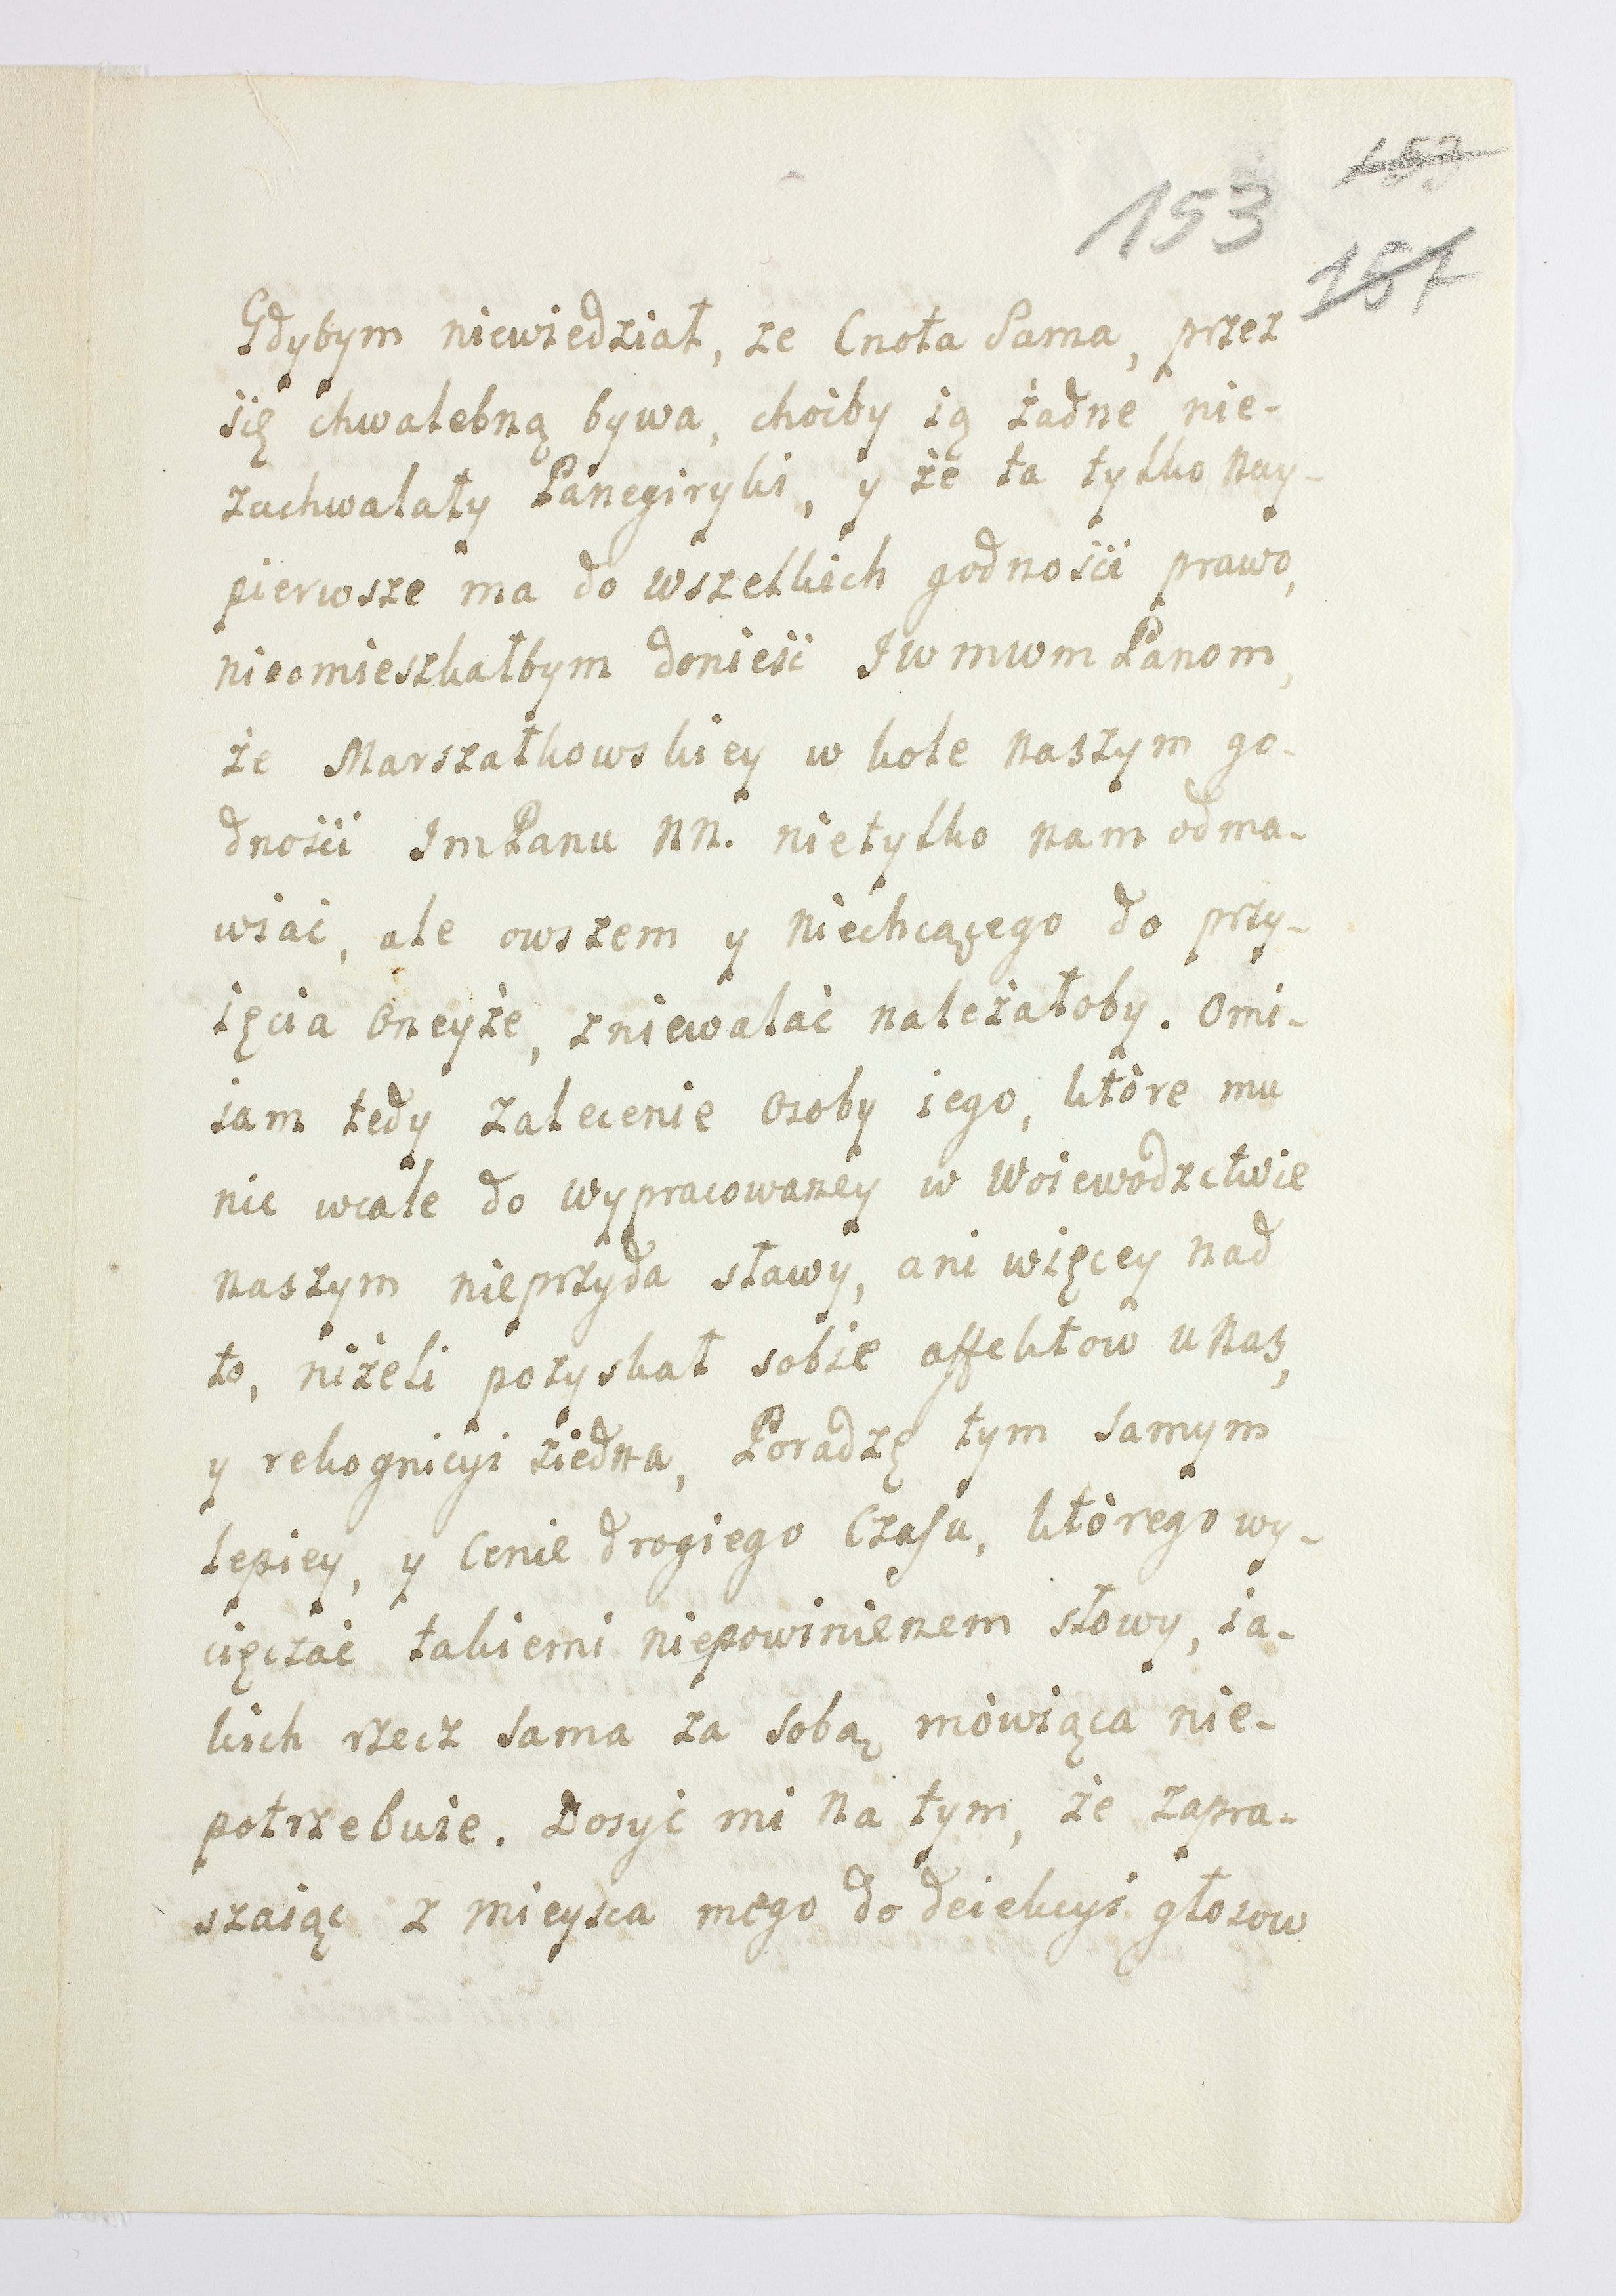 153
153
151
Gdybym niewiedział, ze Cnota Sama, przez
się chwalebną bywa, choćby ią żadne nie-
zachwalały Panegiryki, y że ta tylko nay-
pierwsze ma do wszelkich godności prawo,
nieomieszkałbym donieść JWMWM Panom,
że Marszałkowskiey w kole naszym go-
dności JmPanu NN. nietylko nam odma-
wiać, ale owszem y niechcącego do przy-
ięcia oneyże, zniewalać należałoby. Omi-
iam tedy zalecenie Osoby iego, które mu
nic wcale do wypracowaney w Woiewodzctwie
naszym nieprzyda sławy, ani więcey nad
to, niżeli pozyskał sobie affektow u nas,
y rekognicyi ziedna, Poradzę tym samym
lepiey, y Cenie drogiego Czasu, którego wy-
cięczać takiemi niepowinienem słowy, ia-
kich rzecz sama za sobą mówiąca nie-
potrzebuie. Dosyć mi na tym, że zapra-
szaiąc z mieysca mego do deiekcyi głosow